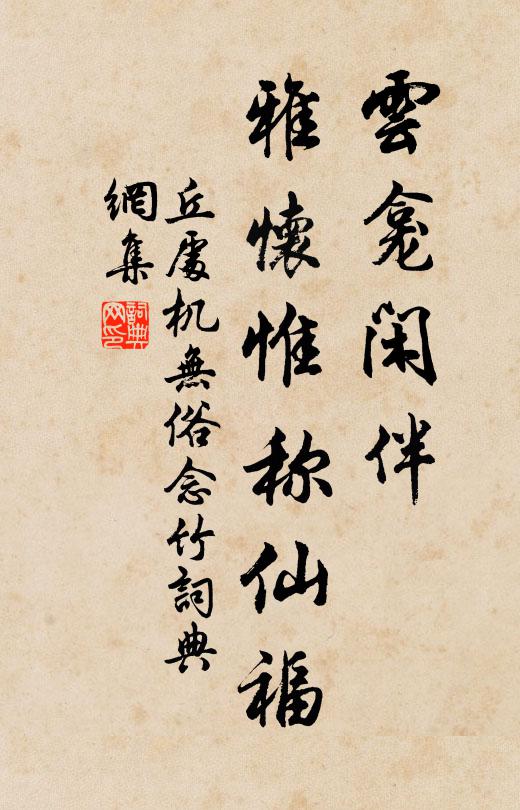 雲龕閑伴
雅懷惟称仙福
丘處机無俗念竹詞典
網集
詞典
网印